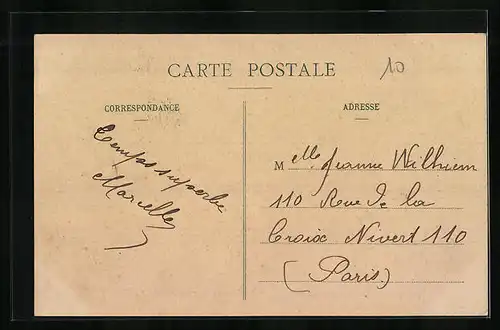 CARTE POSTALE
10
CORRESPONDANCE
Temps superbe
Marcelle
ADRESSE
M elle Jeanne Wilhiem
110 Rue de la
Croix Nivert 110
(Paris)